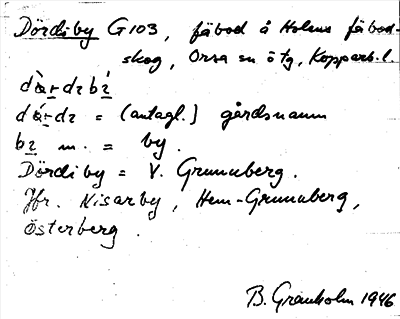 Dördiby G103, fäbod å Holens fäbod-
skog, Orsa sn ö tg, Kopparb. l.
dàrdɪbí
dárdɪ = (antagl.) gårdsnamn
bɪ m. = by.
Dördiby = V. Grunuberg.
Jfr. Nisarby, Hem-Grunuberg,
Österberg.
B. Granholm 1946